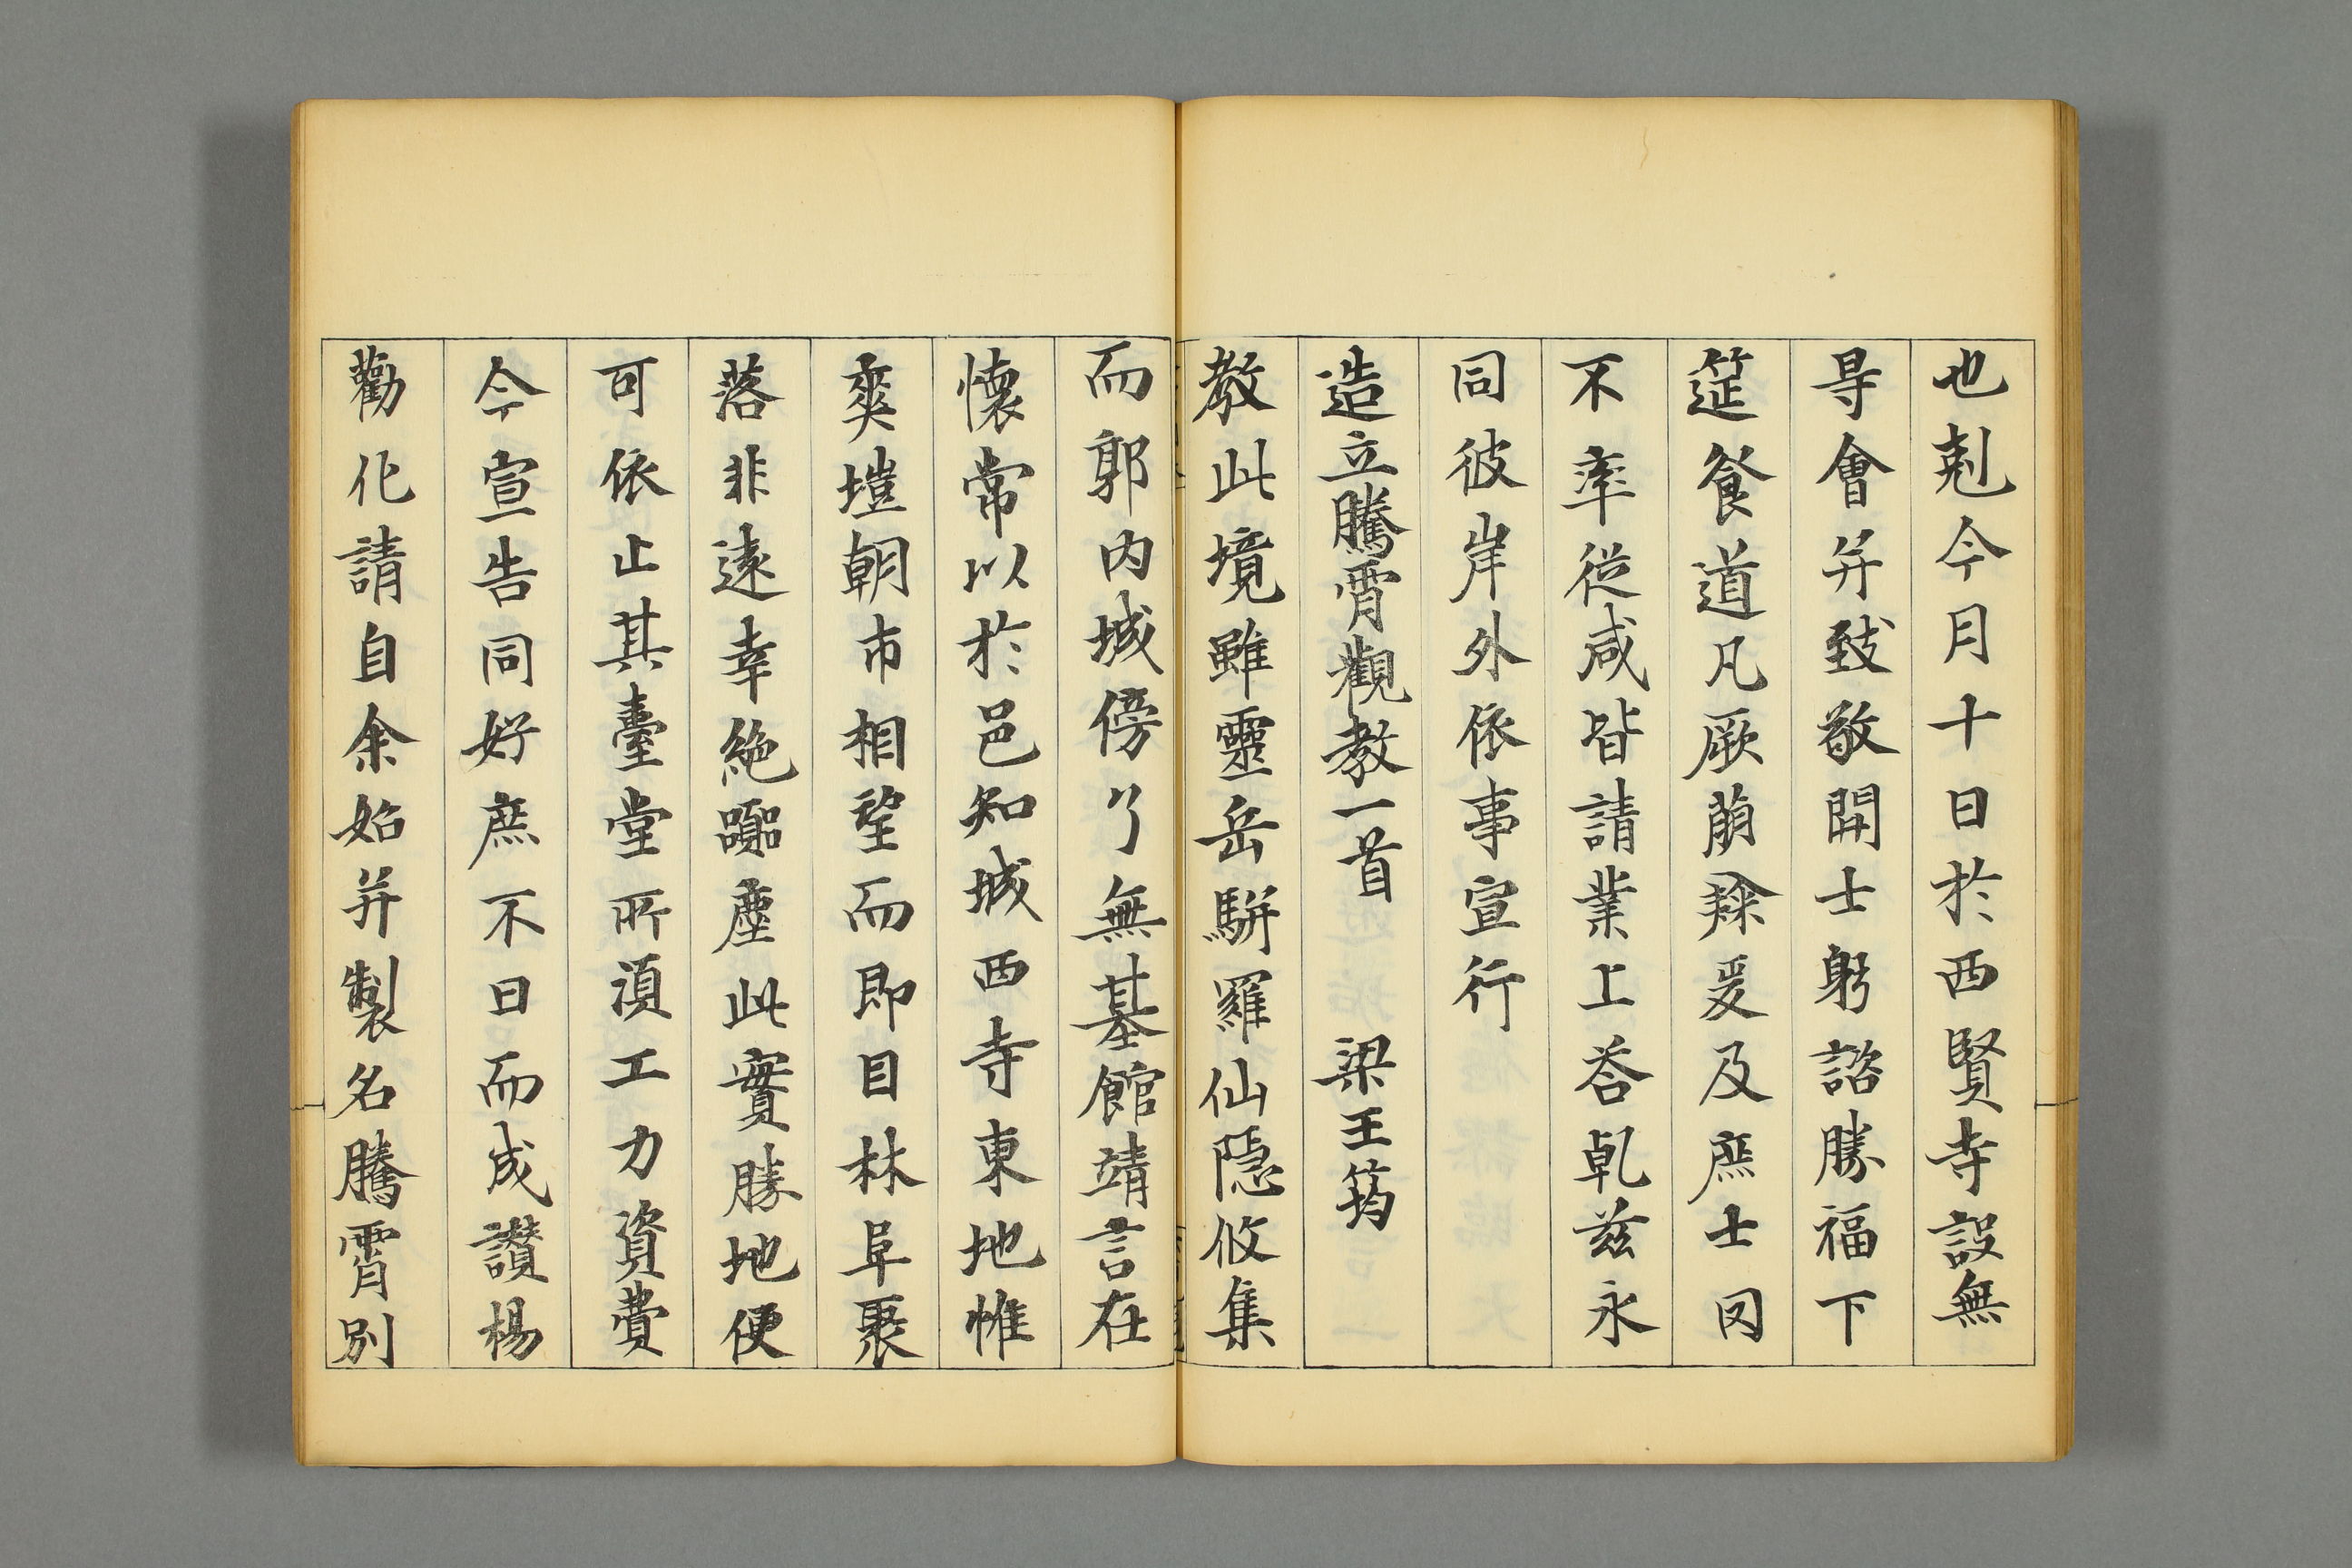 也剋今月十日於西賢寺設無
㝵會并致敬開士躬諮勝福下
筵飡道凡厥萠𥻘爰及庶士罔
不率從咸皆請業上荅乹兹永
同彼岸外依事宣行
造立騰霄觀教一首 梁王筠
教此境雖靈岳駢羅仙隱攸集
而郭内城傍了無基館靖言在
懷常以於邑知城西寺東地惟
爽塏朝市相望而即目林阜聚
落非遠幸絶躢塵此實勝地便
可依止其臺堂所湏工力資費
今宣告同好庶不日而成讃楊
勸化請自余始并製名騰霄別